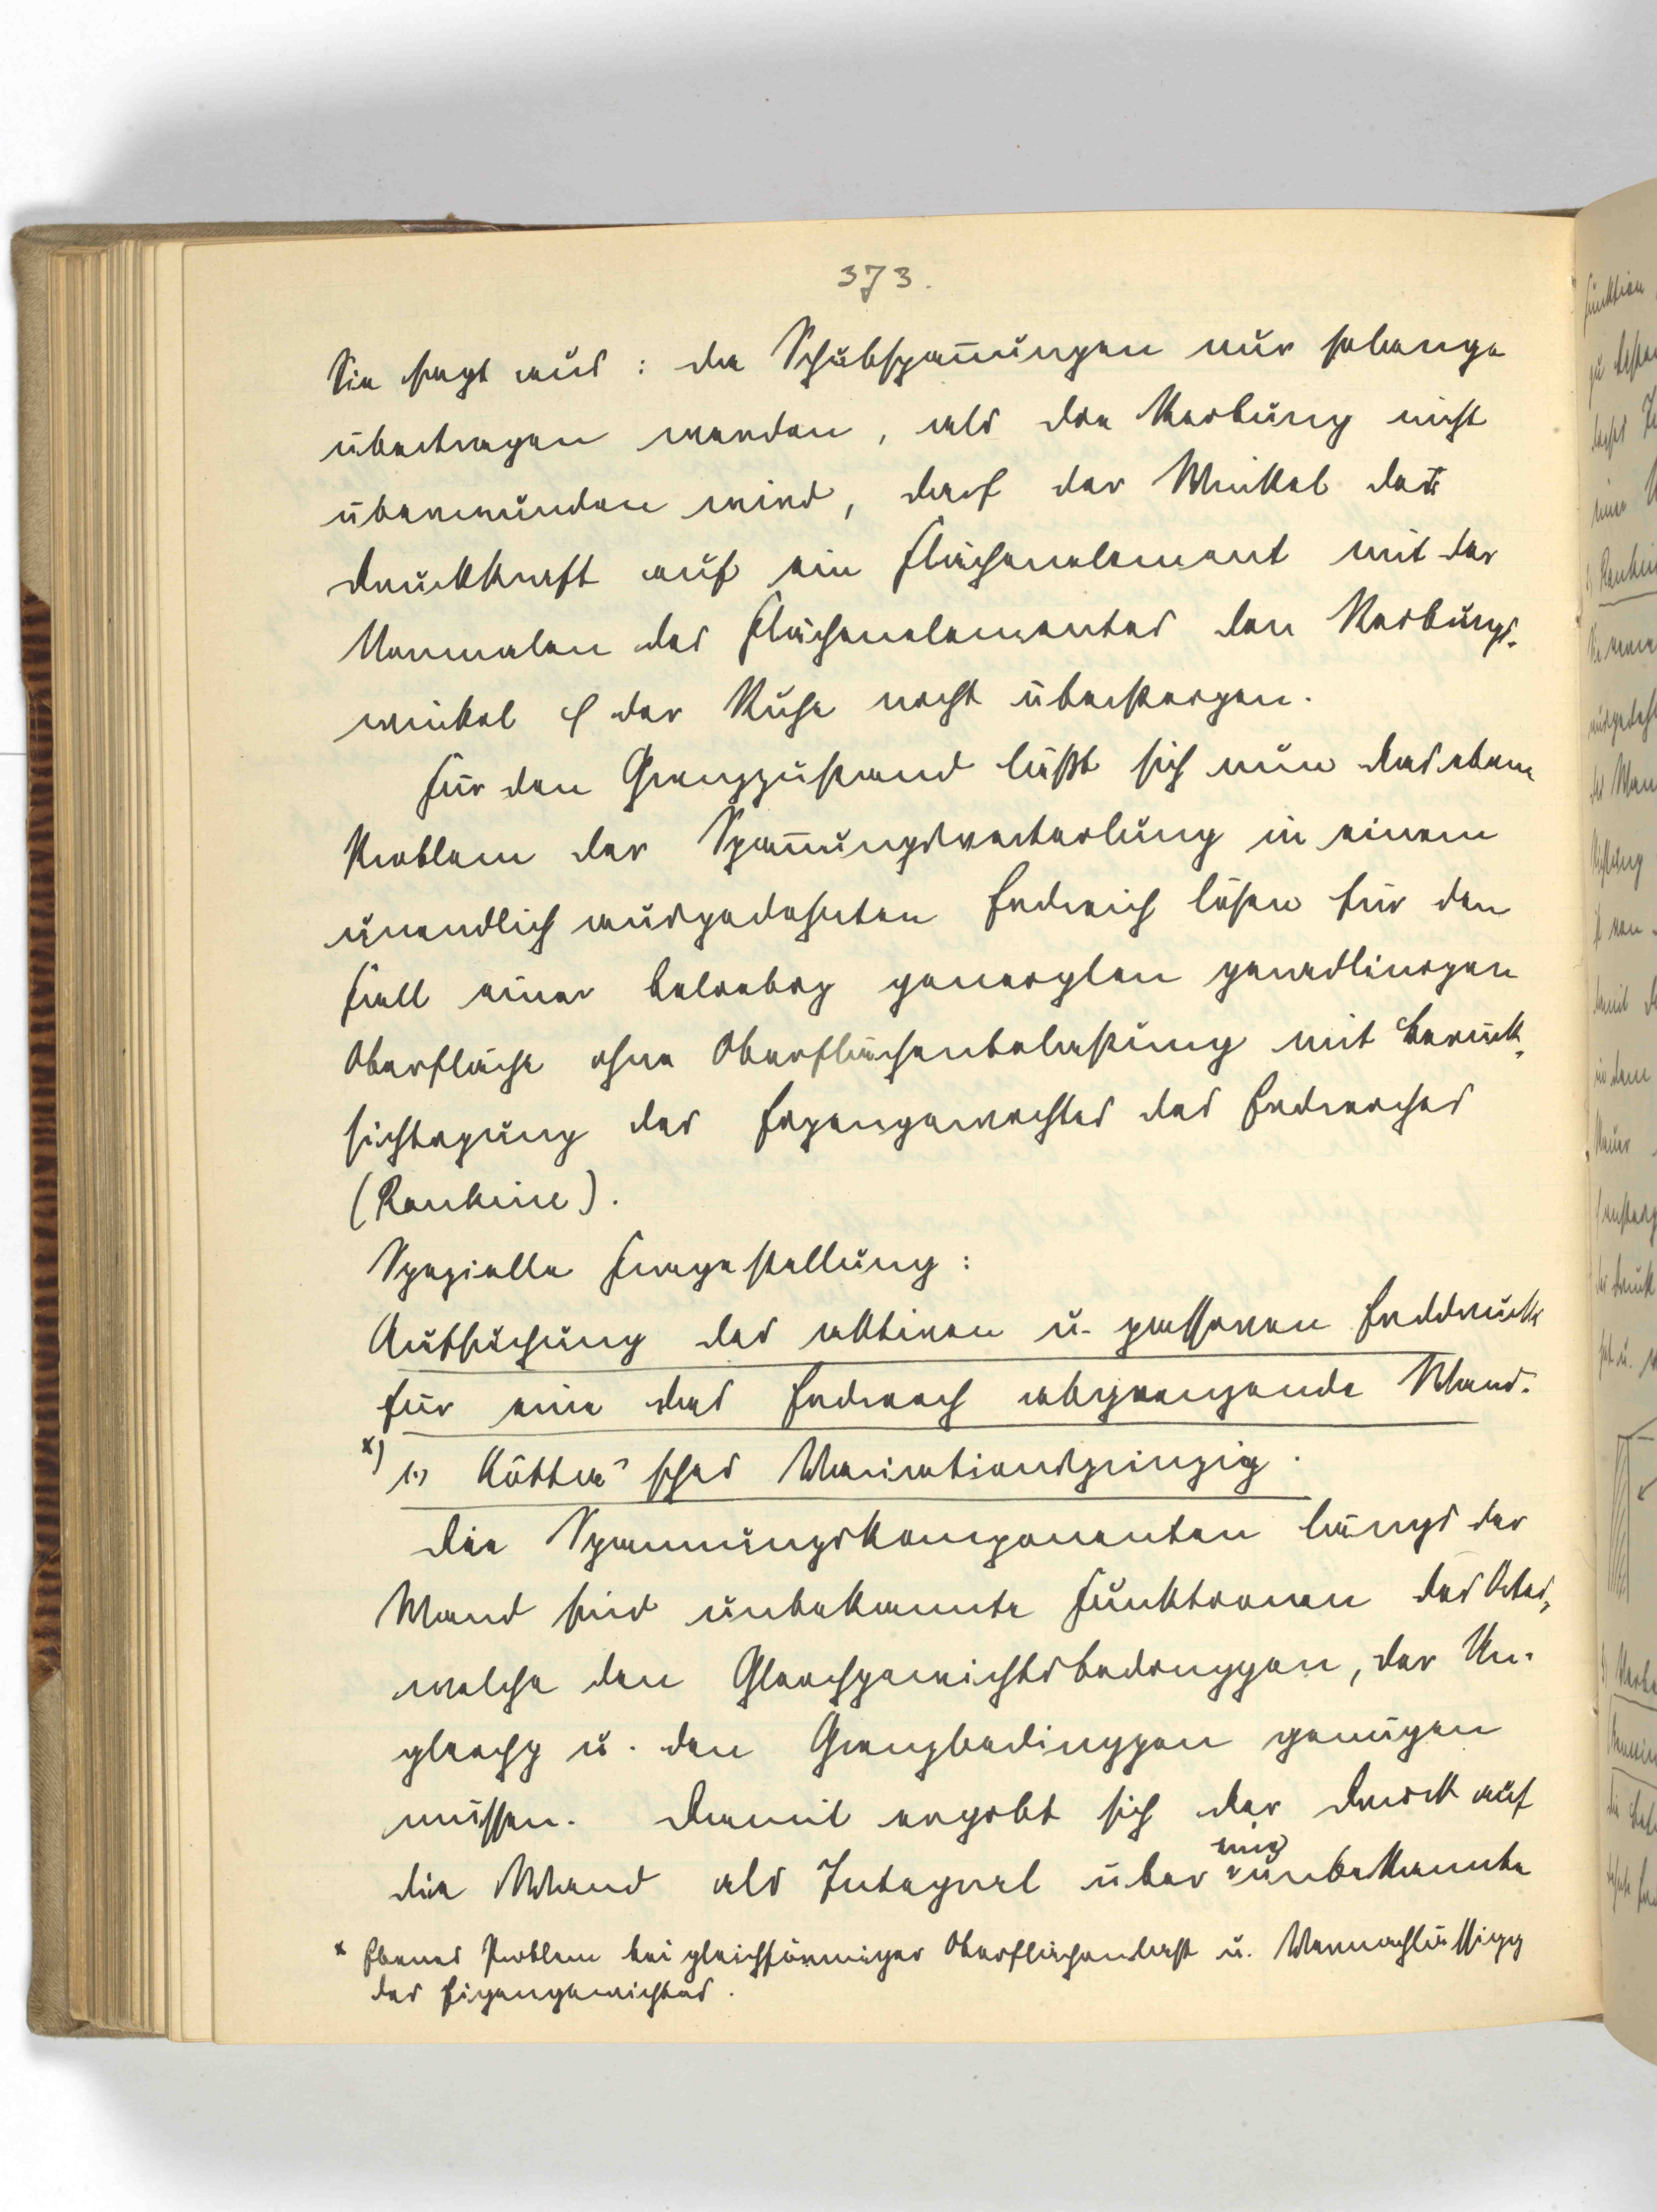 373.
Sie sagt aus: da Schubspannungen nur solange
übertragen werden, als die Reibung nicht
überwunden wird, darf der Winkel der
Druckkraft auf ein Flächenelement mit der
Normalen des Flächenelementes den Reibungs-
winkel φ der Ruhe nicht übersteigen.
Für den Grenzzustand läßt sich nun das ebene
Problem der Spannungsverteilung in einem
unendlich ausgedehnten Erdreich lösen für den
Fall einer beliebig geneigten geradlinigen
Oberfläche ohne Oberflächenbelastung mit Berück-
sichtigung des Eigengewichtes des Erdreiches
(Rankine).
Spezielle Fragestellung:
Aufsuchung des aktiven u. passiven Erddrucks
für eine das Erdreich abgrenzende Wand.
x) 1.) Kötter'sches Variationsprinzip.
Die Spannungskomponenten längs der
Wand sind unbekannte Funktionen des Ortes,
welche den Gleichgewichtsbedinggen, der Un-
gleichg u. den Grenzbedinggen genügen
müssen. Damit ergibt sich der Druck auf
die Wand als Integral über eine unbekannte
x Ebenes Problem bei gleichförmiger Oberflächenlast u. Vernachlässigg
des Eigengewichtes.